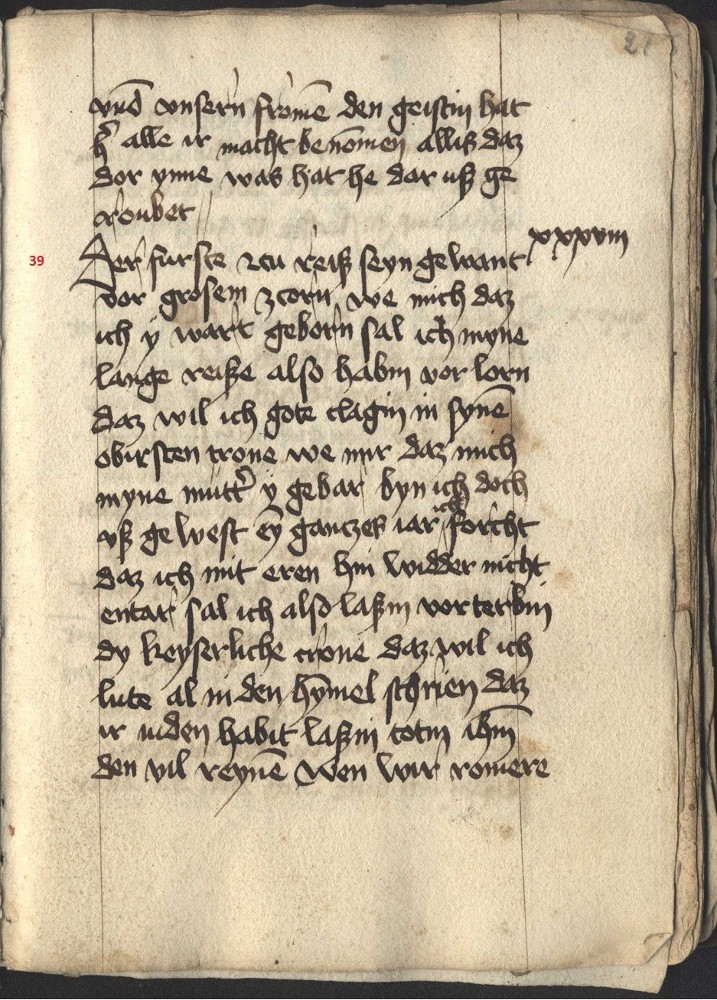 21
vnd vnsern fromē den geistin hat
h̄ alle ir macht benōmen alliß daz
dor ynne was hat he dar uß ge
roubet
39
Der furste zcu reiß seyn gewant xxxviii
vor grosem zcorn we mich daz
ich ÿ wart geborn sal ich myne
lange reiße also habin vorlorn
daz wil ich gote clagin in synē
obirsten trone we mir daz mich
myne mutt̄ ÿ gebar byn ich doch
uß gewest eȳ ganczes iar ich forcht
daz ich mit eren hin widder nicht
entar sal ich also laßin vorterbin
dy keyserliche crone daz wil ich
lute al in den hȳmel schrien daz
ir iuden habit laßin totin ihm̄
den vil reynē wen wir romere